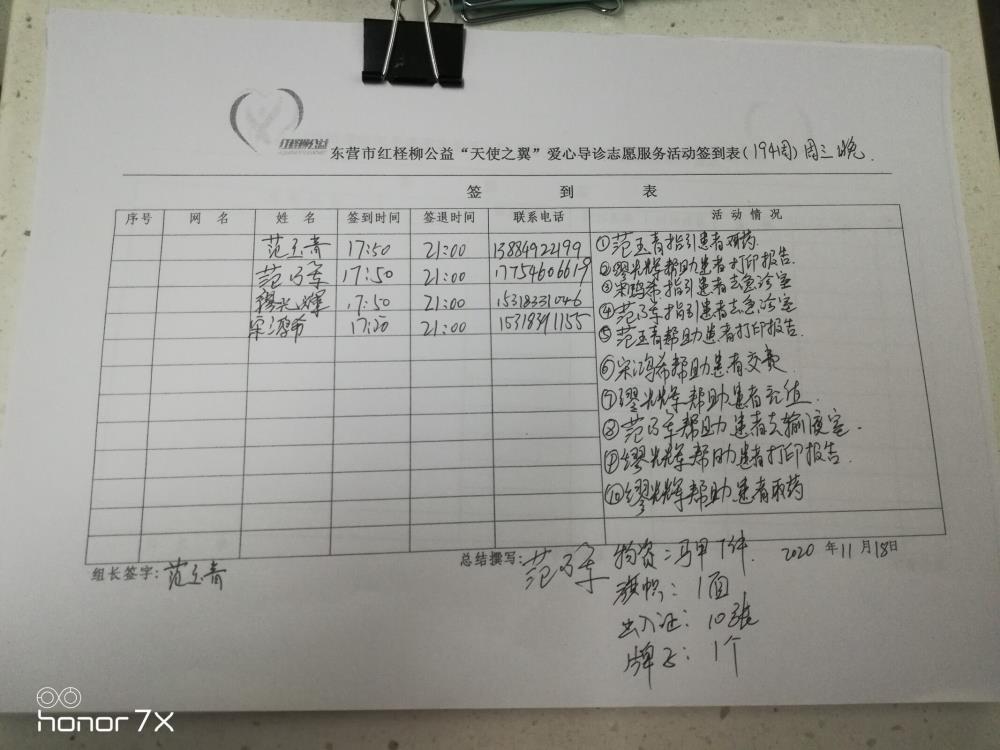 红柽柳公益
东营市红柽柳公益“天使之翼”爱心导诊志愿服务活动签到表(194周)周三晚.
签 到 表
序号 网名 姓名 签到时间 签退时间 联系电话 活动情况
范玉青 17:50 21:00 13884922199 ①范玉青指引患者取药.
17:50 21:00 17754606619 ②缪光辉帮助患者打印报告.
③宋鸿希指引患者去急诊室
缪光辉 17:50 21:00 15318331046 ④范 指引患者去急诊室
宋鸿希 17:50 21:00 15318391155 ⑤范玉青帮助患者打印报告.
⑥宋鸿希帮助患者交费.
⑦缪光辉帮助患者充值.
⑧范 帮助患者去输液室.
⑨缪光辉帮助患者打印报告.
⑩缪光辉帮助患者取药
组长签字:范玉青 总结撰写: 2020 年11月18日
物资:马甲 件.
旗帜:1面
出入证:10张
牌子:1个
honor 7X